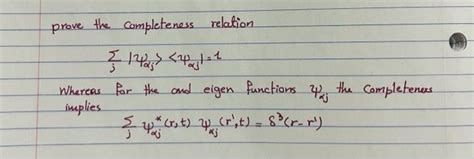 prove the completeness relation
∑_j |ψ_αj> <ψ_αj| = 1
Whereas for the and eigen functions ψ_αj the completeness
implies
∑_j ψ*_αj (r,t) ψ_αj (r',t) = δ³(r-r')